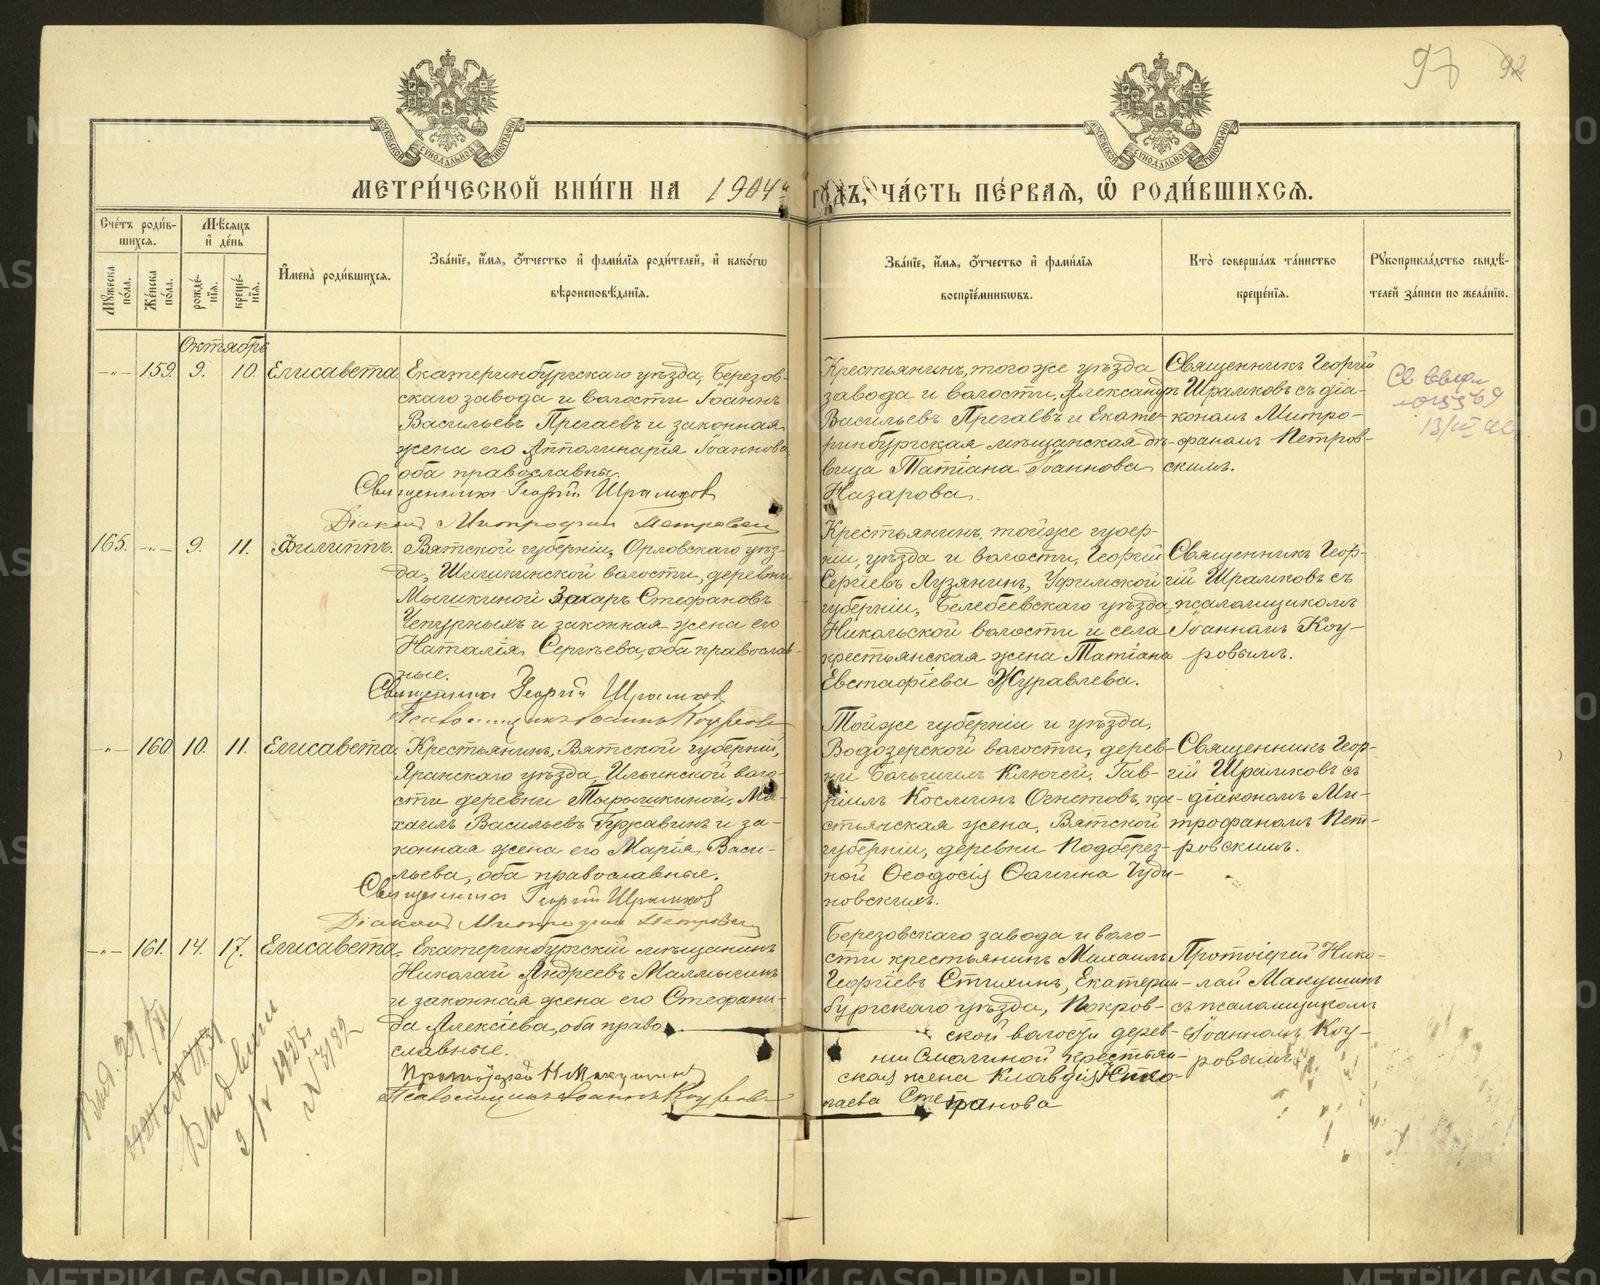 97 92
МОСКОВСКОЙ СѴНОДАЛЬНОЙ ТИПОГРАФІИ
МОСКОВСКОЙ СѴНОДАЛЬНОЙ ТИПОГРАФІИ
МЕТРИ́ЧЕСКОЙ КНИ́ГИ НА 1904й ГО́ДЪ, ЧА́СТЬ ПЕ́РВАЯ, Ѡ РОДИ́ВШИХСЯ.
Сче́тъ роди́в-
шихся.
Мꙋ́жеска по́ла.
Же́нска по́ла.
Мѣ́сяцъ
и҆ де́нь
рожде́-
нїѧ.
креще́-
нїѧ.
И҆мена̀ роди́вшихся.
Зва́нїе, и҆́мѧ, ѻ҆́тчество и҆ фами́лїѧ роди́телей, и҆ како́гѡ
вѣроисповѣ́данїѧ.
Зва́нїе, и҆́мѧ, ѻ҆́тчество и҆ фами́лїѧ
воспрїе́мникѡвъ.
Кто̀ соверша́лъ та́инство
креще́нїѧ.
Рꙋкоприкла́дство свидѣ́-
телей за́писи по жела́нїю.
Октябрь
-"- 159. 9. 10. Елисавета.
Екатеринбургскаго уѣзда, Березов-
скаго завода и волости Іоаннъ
Васильевъ Прегаевъ и законная
жена его Апполинарія Іоаннова
оба православны.
Священникъ Георгій Шрамковъ
Діаконъ Митрофанъ Петровскій
Крестьянинъ, того же уѣзда
завода и волости, Александръ
Васильевъ Прегаевъ и Екате-
ринбургская мѣщанская дѣ-
вица Татіана Іоаннова
Назарова.
Священникъ Георгій
Шрамковъ съ діа-
кономъ Митро-
фаномъ Петров-
скимъ.
165. -"- 9. 11. Филиппъ.
Вятской губерніи, Орловскаго уѣз-
да, Шишкинской волости, деревни
Мышкиной Захаръ Стефановъ
Чепурныхъ и законная жена его
Наталія Сергѣева, оба православ-
ные.
Священникъ Георгій Шрамковъ
Псаломщикъ Іоаннъ Коуровъ
Крестьянинъ той же губер-
ніи, уѣзда и волости, Георгій
Сергіевъ Лузянинъ, Уфимской
губерніи, Белебеевскаго уѣзда,
Никольской волости и села
крестьянская жена Татіана
Евстафіева Журавлева.
Священникъ Геор-
гій Шрамковъ съ
псаломщикомъ
Іоанномъ Коу-
ровымъ.
-"- 160 10. 11. Елисавета.
Крестьянинъ, Вятской губерніи,
Яранскаго уѣзда, Ильинской воло-
сти деревни Тырышкиной, Ми-
хаилъ Васильевъ и за-
конная жена его Марія Васи-
льева, оба православные.
Священникъ Георгій Шрамковъ
Діаконъ Митрофанъ Петровскій
Той же губерніи и уѣзда,
Водозерской волости, дерев-
ни Большихъ Ключей, Гав-
ріилъ Косминъ Огнетовъ, кре-
стьянская жена, Вятской
губерніи, деревни Подберез-
ной Ѳеодосія Ѳомина Чуди-
новскихъ.
Священникъ Геор-
гій Шрамковъ съ
діакономъ Ми-
трофаномъ Пет-
ровскимъ.
-"- 161. 14. 17. Елисавета.
Екатеринбургскій мѣщанинъ
Николай Андреевъ Малмыгинъ
и законная жена его Стефани-
да Алексіева, оба право-
славные.
Протоіерей Н. Макушинъ
Псаломщикъ Іоаннъ Коуровъ
Березовскаго завода и воло-
сти крестьянинъ Михаилъ
Георгіевъ Стихинъ, Екатерин-
бургскаго уѣзда, Покров-
ской волости дерев-
ни Смолиной крестьян-
ская жена Клавдія Нико-
лаева
Протоіерей Нико-
лай Макушинъ
съ псаломщикомъ
Іоанномъ Коу-
ровымъ.